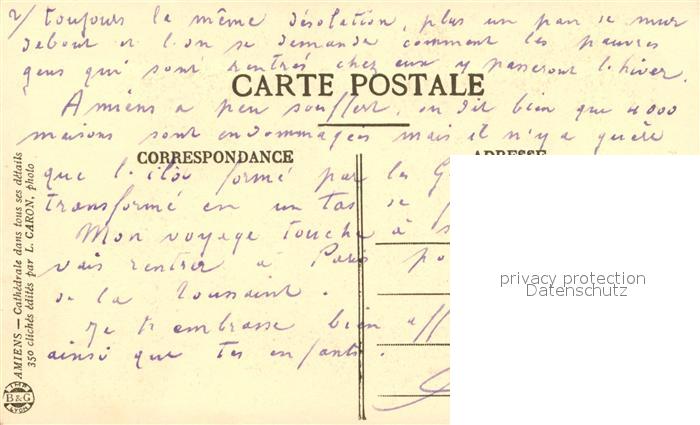 2/ toujours la même désolation, plus un pan de mur
debout et l'on se demande comment les pauvres
gens qui sont rentrés chez eux y passeront l'hiver.
CARTE POSTALE
Amiens a peu souffert, on dit bien que 4000
maisons sont endommagées mais il n'y a guère
CORRESPONDANCE
ADRESSE
que l'ilôt formé par les G
transformé en un tas de
Mon voyage touche à s
vais rentrer à Paris po
de la Toussaint.
Je t'embrasse bien aff
ainsi que tes enfants.
AMIENS — Cathédrale dans tous ses détails
350 clichés édités par L. CARON, photo
IMP.
B&G
LYON
privacy protection
Datenschutz